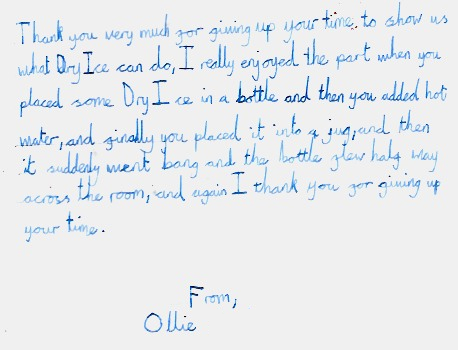 Thank you very much for giving up your time, to show us
what Dry Ice can do, I really enjoyed the part when you
placed some Dry Ice in a bottle and then you added hot
water, and finally you placed it into a jug, and then
it suddenly went bang and the bottle flew half way
across the room, and again I thank you for giving up
your time.
From,
Ollie